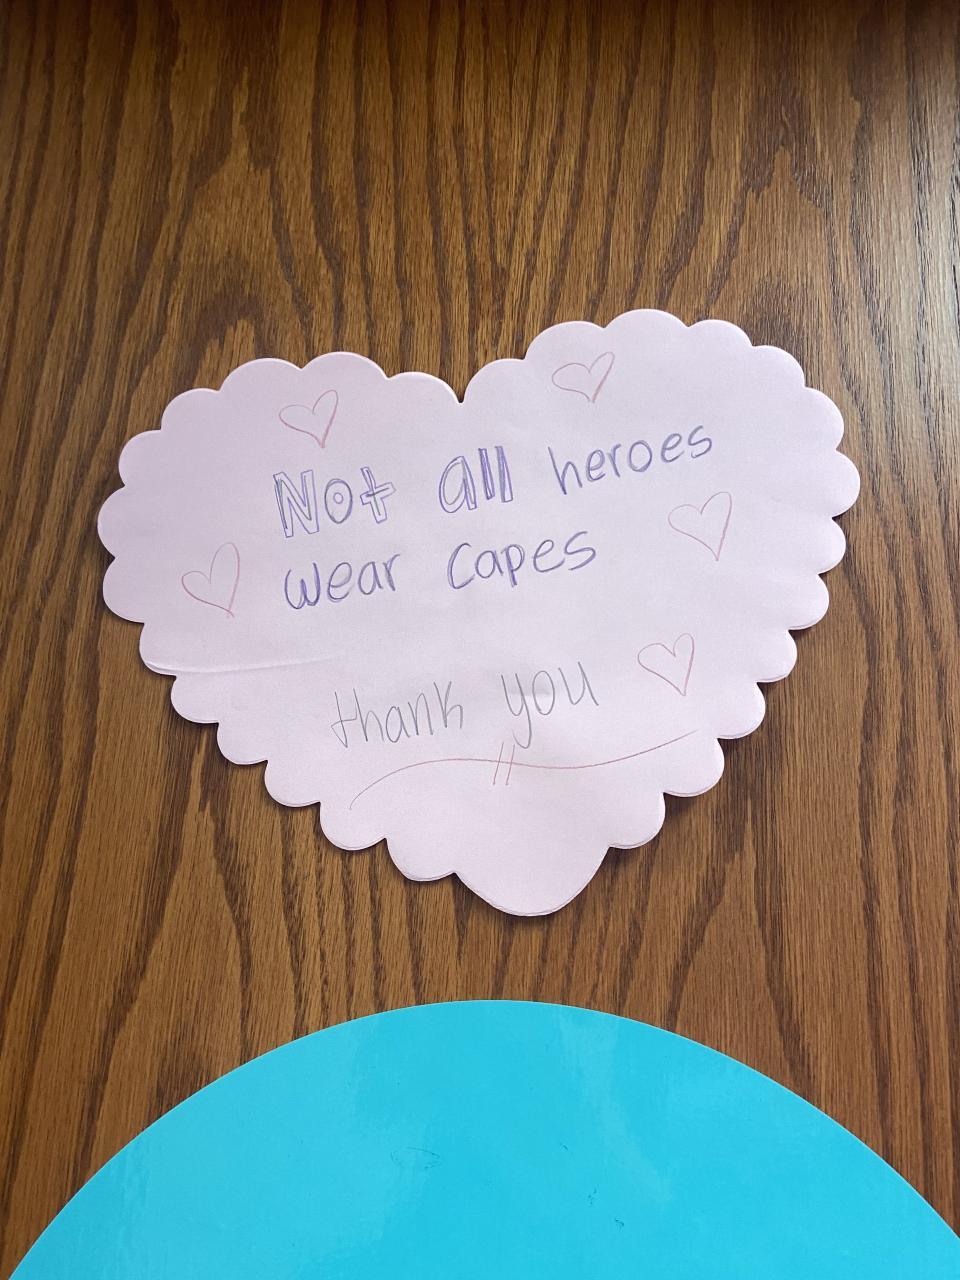 Not all heroes
wear capes
thank you